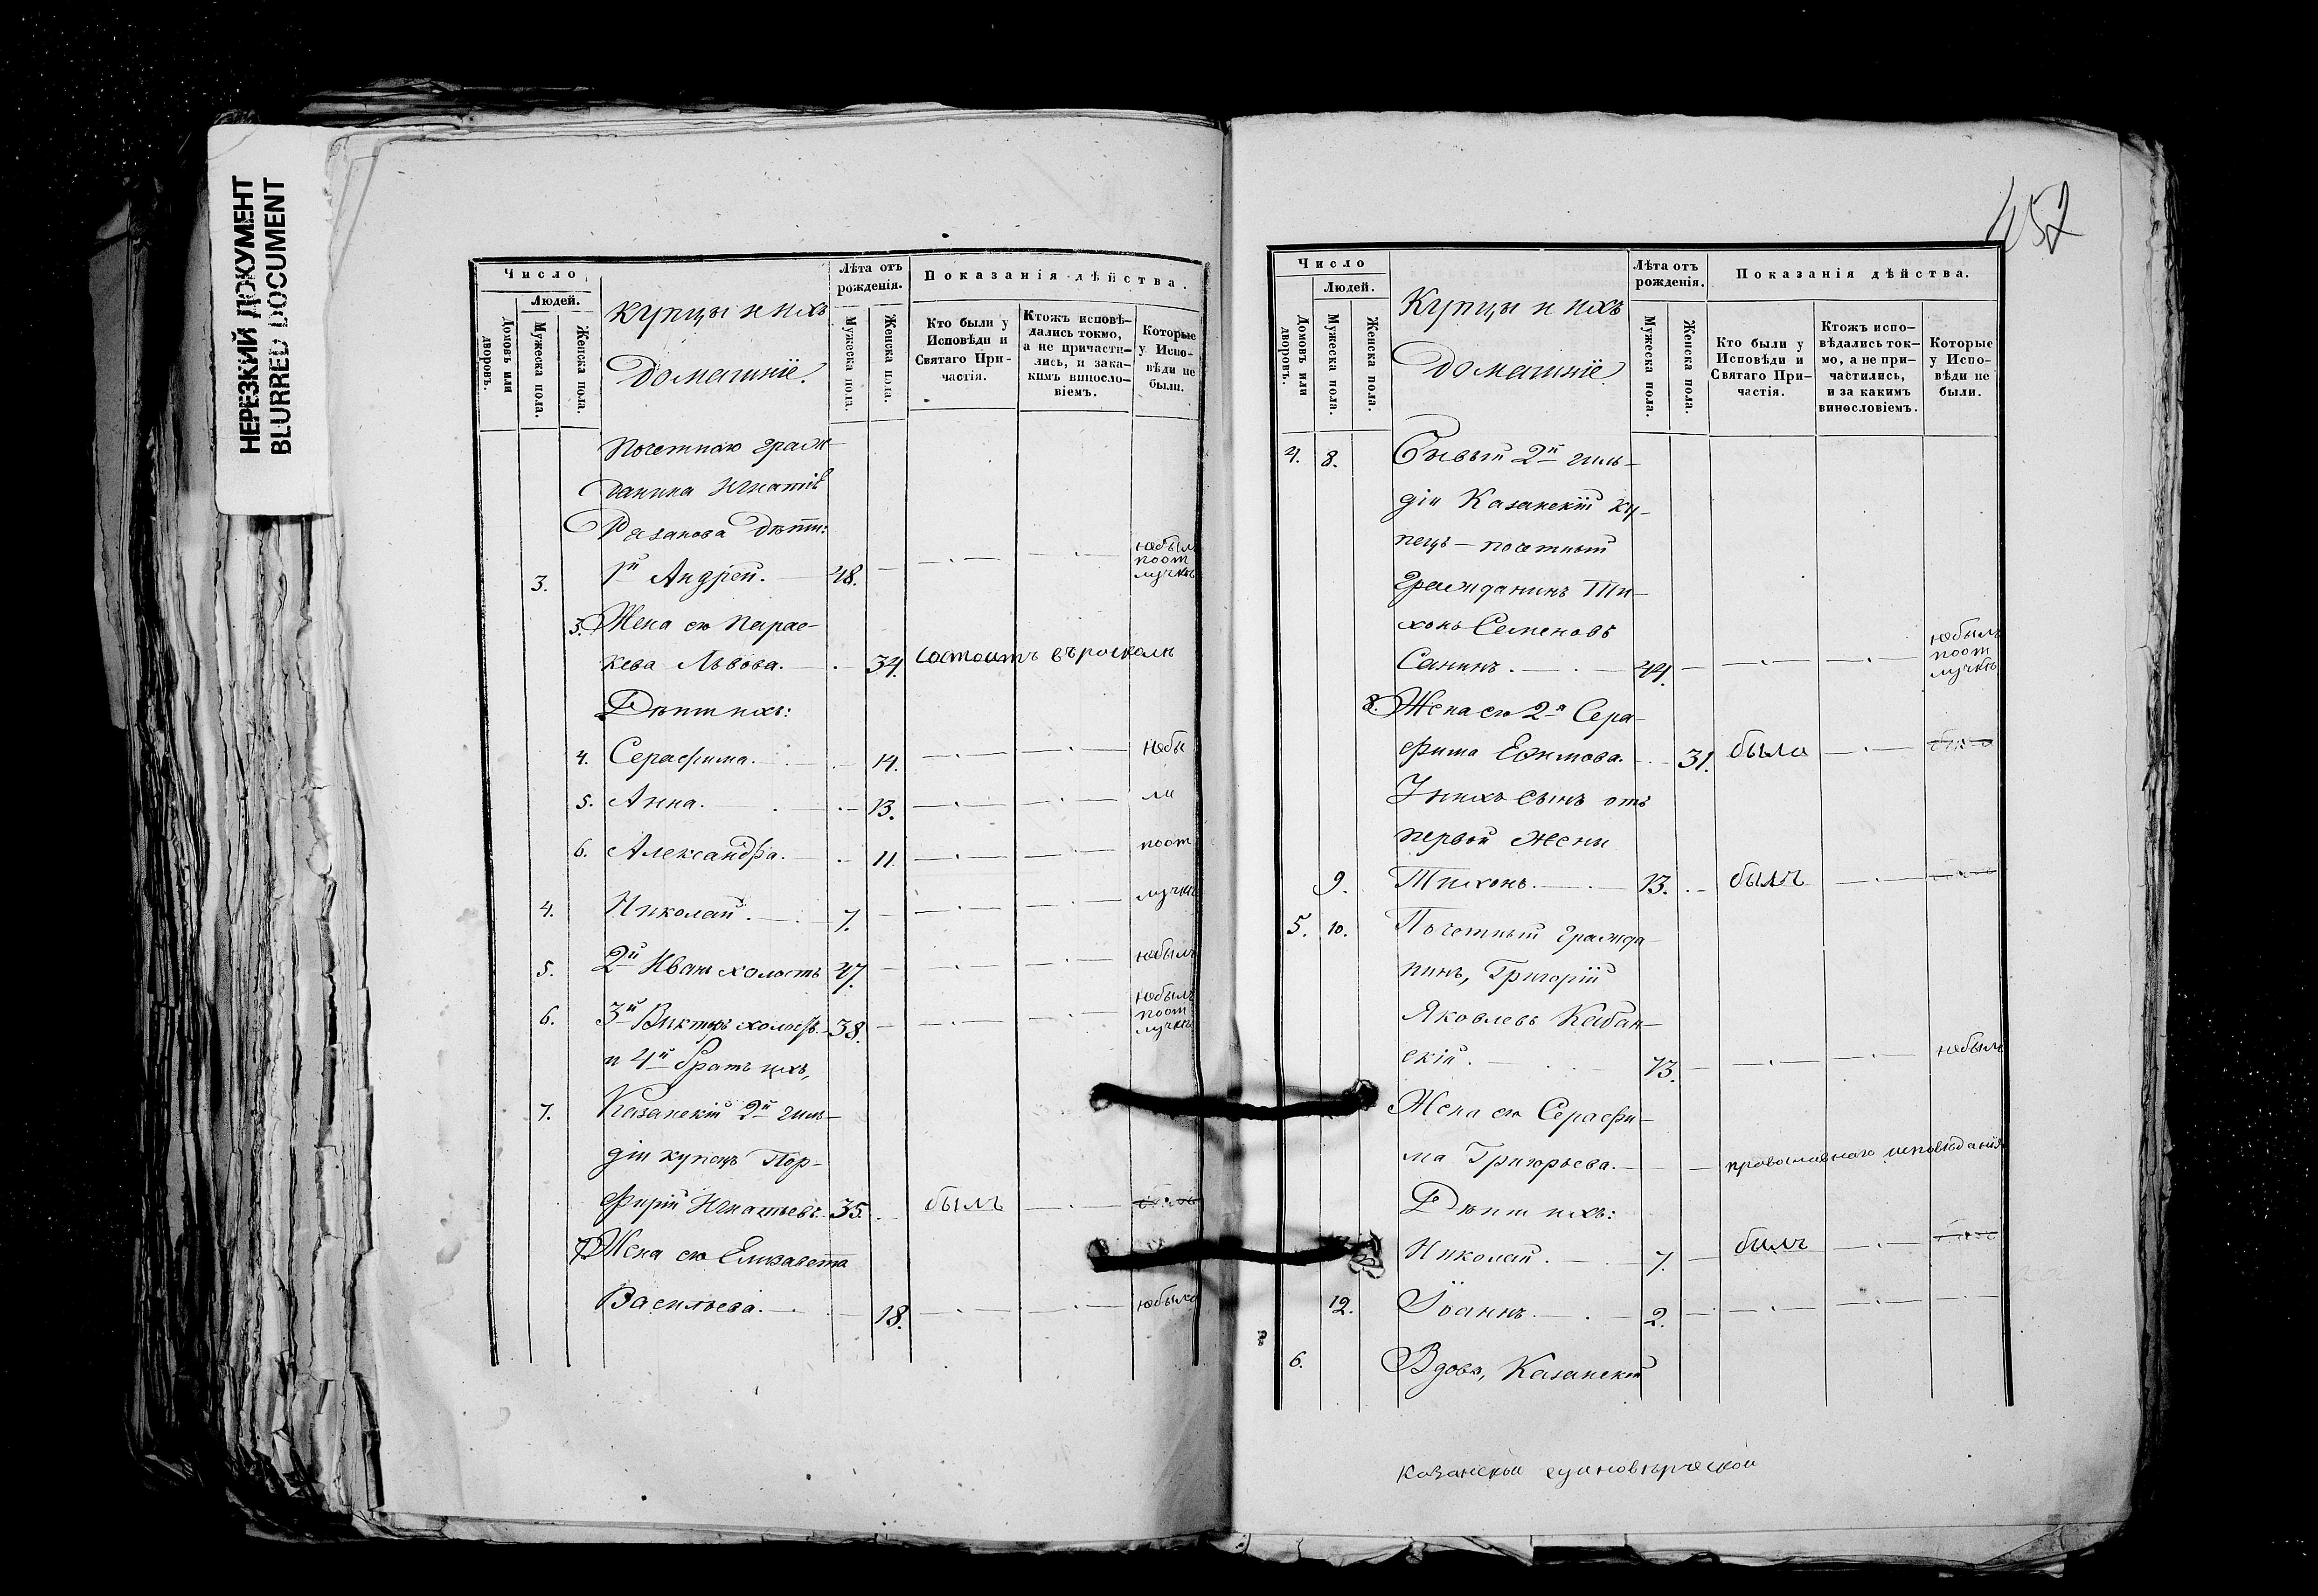 НЕРЕЗКИЙ ДОКУМЕНТ
BLURRED DOCUMENT
Число
Людей.
Домовъ или дворовъ.
Мужеска пола.
Женска пола.
Купцы и ихъ
Домашніе.
Лѣта отъ рожденія.
Мужеска пола.
Женска пола.
Показанія дѣйства.
Кто были у Исповѣди и Святаго Причастія.
Ктожъ исповѣдались токмо, а не причастились, и закакимъ винословіемъ.
Которые у Исповѣди не были.
Почетнаго граж-
данина Игнатія
Рязанова Дѣти:
3. 1й Андрей. 48. небылъ поот лучкѣ
3. Жена его Парас-
кева Львова. 34. состоитъ въ расколѣ
Дѣти ихъ:
4. Серафима. 14. небы
5. Анна. 13. ли
6. Александра. 11. поот
4. Николай. 7. лучкѣ
5. 2й Иванъ холостъ 47. небылъ
6. 3й Викторъ холостъ 38. небылъ поот лучкѣ
и 4й братъ ихъ,
7. Казанскій 2й гиль-
діи купецъ Пор-
фирій Игнатьевъ. 35. былъ
7. Жена его Елизавета
Васильева. 18. небыла
452
Число
Людей.
Домовъ или дворовъ.
Мужеска пола.
Женска пола.
Купцы и ихъ
Домашніе.
Лѣта отъ рожденія.
Мужеска пола.
Женска пола.
Показанія дѣйства.
Кто были у Исповѣди и Святаго Причастія.
Ктожъ исповѣдались токмо, а не причастились, и за какимъ винословіемъ.
Которые у Исповѣди не были.
4. 8. Бывый 2й гиль-
діи Казанскій ку-
пецъ - почетный
Гражданинъ Ти-
хонъ Семеновъ
Санинъ. 44. небылъ поот лучкѣ
8. Жена его 2я Сера-
фима Ефимова. 31. была
У нихъ сынъ отъ
первой жены
9. Тихонъ. 13. былъ
5. 10. Почетный гражда-
нинъ, Григорій
Яковлевъ Кабан-
скій. 73. небылъ
Жена его Серафи-
ма Григорьева. православнаго исповѣданія
Дѣти ихъ:
Николай. 7. былъ
12. Іоаннъ. 2.
6. Вдова, Казанскій
Казанской единовѣрческой